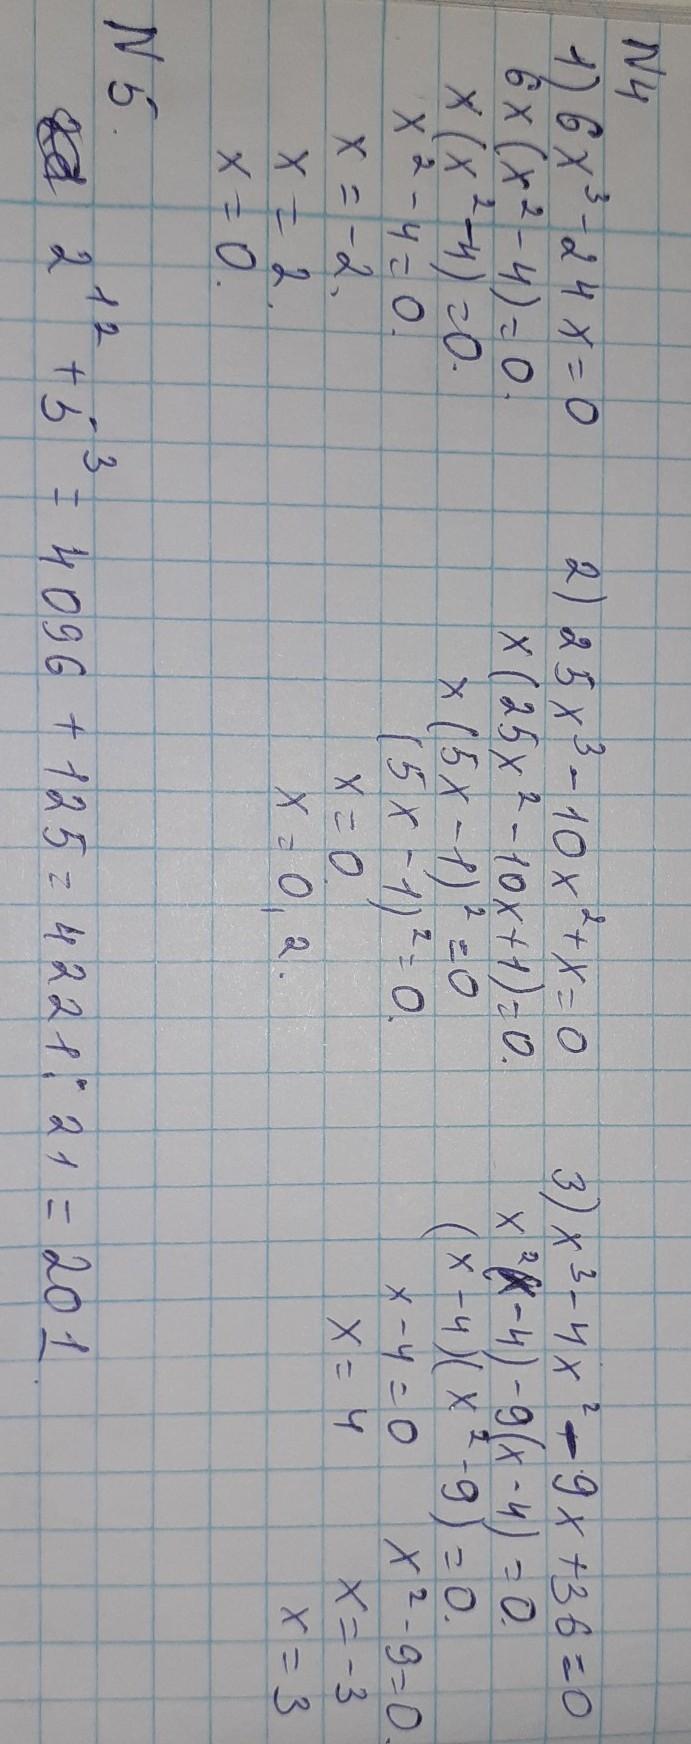 N4
1) 6x³ - 24x = 0
6x(x² - 4) = 0.
x(x² - 4) = 0.
x² - 4 = 0.
x = -2,
x = 2.
x = 0.
2) 25x³ - 10x² + x = 0
x(25x² - 10x + 1) = 0.
x(5x - 1)² = 0
(5x - 1)² = 0.
x = 0
x = 0,2.
3) x³ - 4x² - 9x + 36 = 0
x²(x - 4) - 9(x - 4) = 0.
(x - 4)(x² - 9) = 0.
x - 4 = 0 x² - 9 = 0.
x = 4 x = -3
x = 3
N5.
2¹² + 5³ = 4096 + 125 = 4221 : 21 = 201.